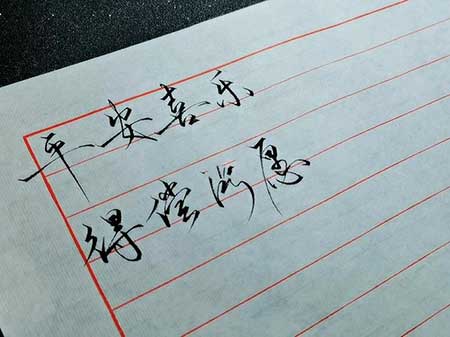 平安喜乐
得偿所愿